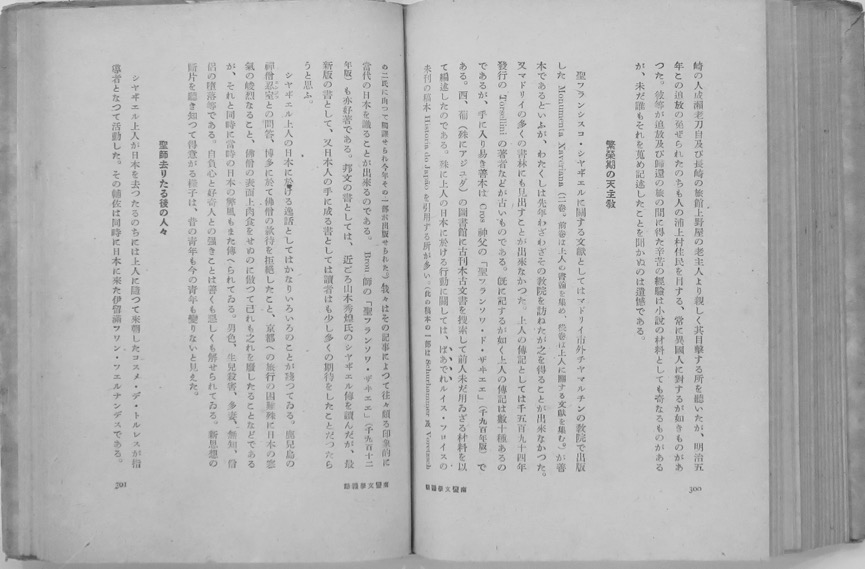 崎の人成瀬老刀自及び長崎の旅館上野屋の老主人より親しく其目撃する所を聽いたが、明治五
年この追放の免ぜられたのちも人の浦上村住民を目する、常に異國人に對するが如きものがあ
つた。彼等が追放及び歸還の旅の間に得た辛苦の經驗は小説の材料としても奇なるものがある
が、未だ誰もそれを蒐め記述したことを聞かぬのは遺憾である。
繁榮期の天主教
聖フランシスコ・シヤヸエルに關する文獻としてはマドリイ市外チヤマルチンの教院で出版
した Monumenta Xaveriana (二卷。前卷は上人の書翰を集め、後卷は上人に關する文獻を集む。)が善
本であるといふが、わたくしは先年わざわざその教院を訪ねたが之を得ることが出來なかつた。
又マドリイの多くの書林にも見出すことが出來なかつた。上人の傳記としては千五百九十四年
發行の Torsellini の著者などが古いものである。既に記するが如く上人の傳記は數十種あるの
であるが、手に入り易き善本は Cros 神父の「聖フランソワ・ド・ザヰエエ」(千九百年版)で
ある。西、葡(殊にアジュダ)の圖書館に古刊本古文書を搜索して前人未だ用ゐざる材料を以
て編述したのである。殊に上人の日本に於ける行動に關しては、ぱあでれルイス・フロイスの
未刊の稿本 Historia do Japão を引用する所が多い。(此の稿本の一部は Schurhammer 及 Voretzsch
300
南蠻文學雜話
の二氏に由つて飜譯せられ今年その一部が出版せられた。)我々はその記事によつて往々頗る印象的に
當代の日本を識ることが出來るのである。 Brou 師の「聖フランソワ・ザヰエエ」(千九百十二
年版)も亦好著である。邦文の書としては、近ごろ山本秀煌氏のシヤヸエル傳を讀んだが、最
新版の書として、又日本人の手に成る書としては讀者はも少し多くの期待をしたことだつたら
うと思ふ。
シヤヸエル上人の日本に於ける逸話としてはかなりいろいろのことが殘つてゐる。鹿兒島の
禪僧忍室との問答、博多に於て佛僧の款待を拒絶したこと、京都への旅行の困難殊に日本の寒
氣の峻烈なること、佛僧の表面上肉食をせぬのに倣つて己れも之れを廢したることなどである
が、それと同時に當時の日本の弊風もまた傳へられてゐる。男色、生兒殺害、多妻、無知、僧
侶の墮落等である。自負心と好奇人との强きことは善くも惡しくも解せられてゐる。新思想の
斷片を聽き知つて得意がる樣子は、昔の青年も今の青年も變りないと見えた。
聖師去りたる後の人々
シヤヸエル上人が日本を去つたるのちには上人に隨つて來朝したコスメ・デ・トルレスが指
導者となつて活動した。その輔佐は同時に日本に來た伊留滿フワン・フエルナンデスである。
南蠻文學雜話
301